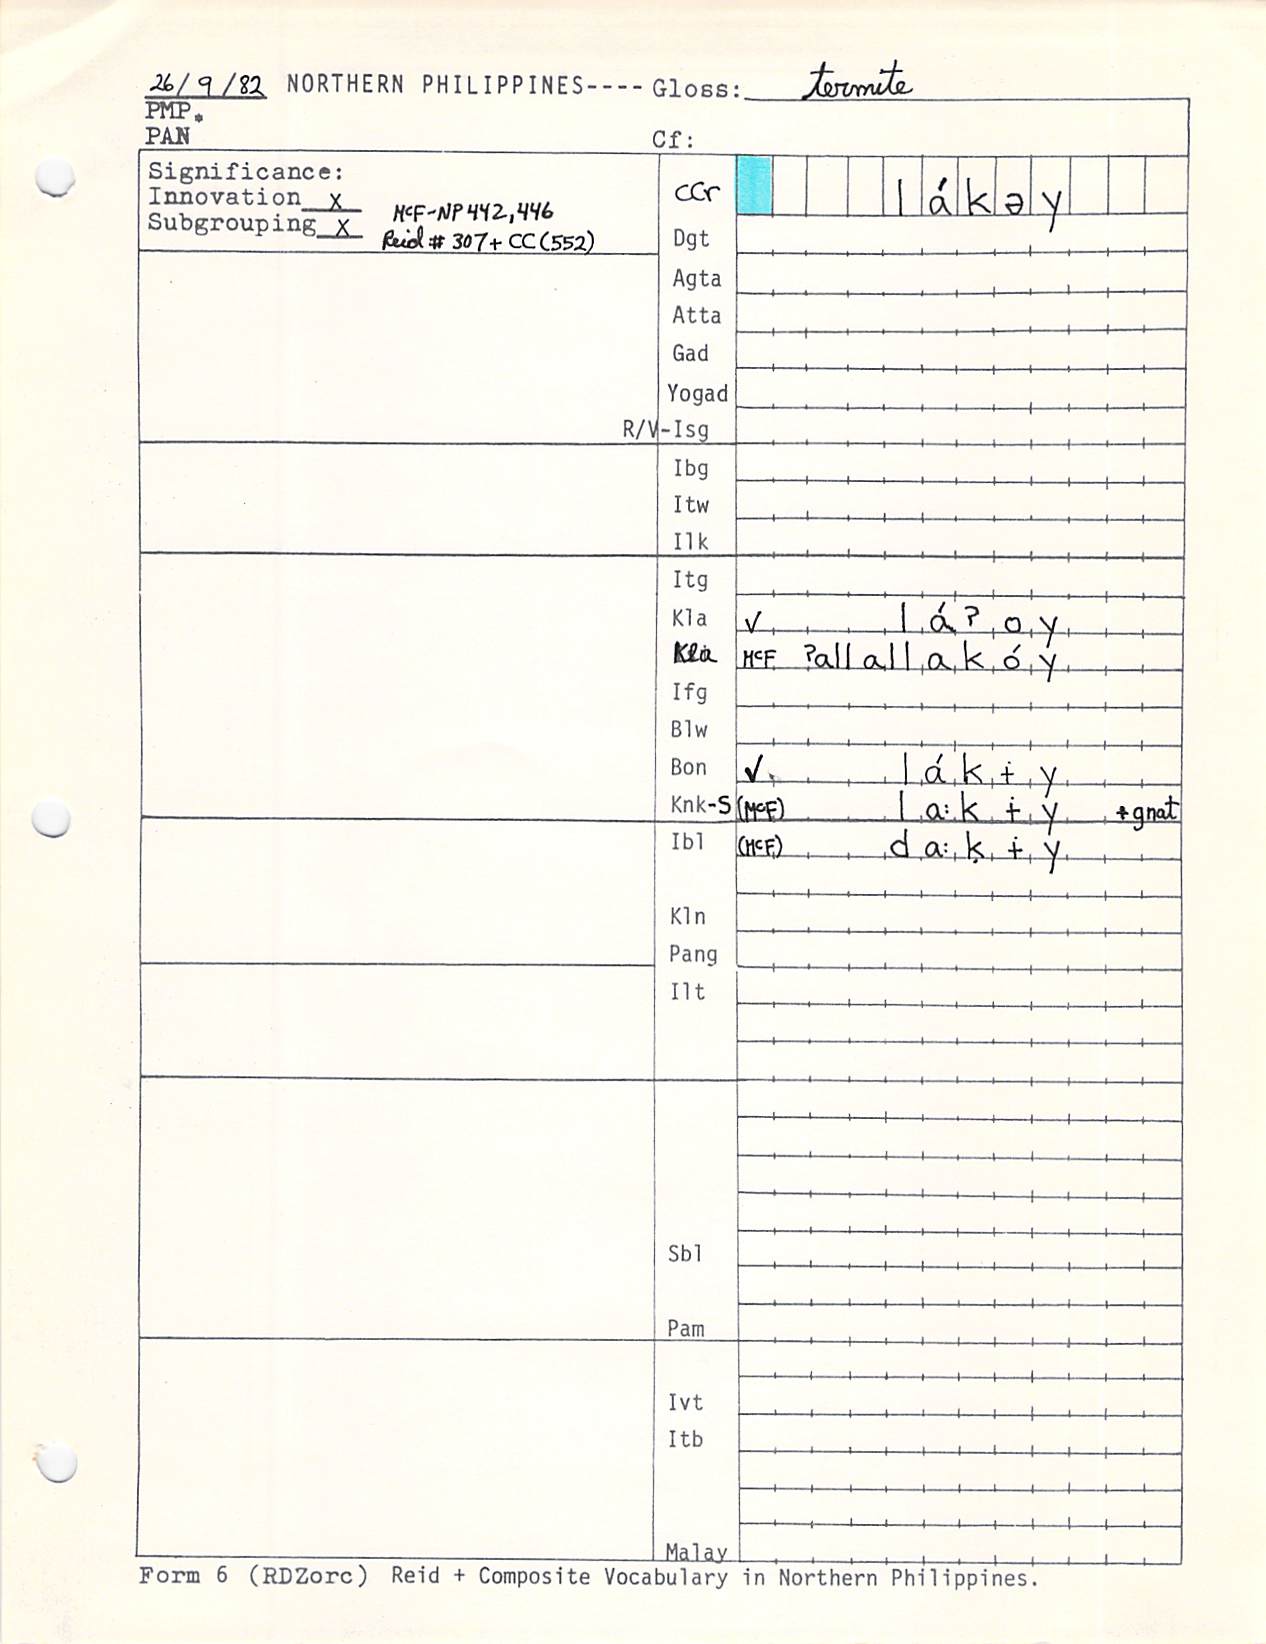 26/9/82 NORTHERN PHILIPPINES---- Gloss: termite
PMP*
PAN Cf:
Significance:
Innovation X
Subgrouping X
McF-NP 442,446
Reid # 307 + CC (552)
CCr lákəy
Dgt
Agta
Atta
Gad
Yogad
R/V-Isg
Ibg
Itw
Ilk
Itg
Kla ✓ láʔoy
Kla McF ʔallallakóy
Ifg
Blw
Bon ✓ lákɨy
Knk-S (McF) la:kɨy + gnat
Ibl (McF) da:kɨy
Kln
Pang
Ilt
Sbl
Pam
Ivt
Itb
Malay
Form 6 (RDZorc) Reid + Composite Vocabulary in Northern Philippines.